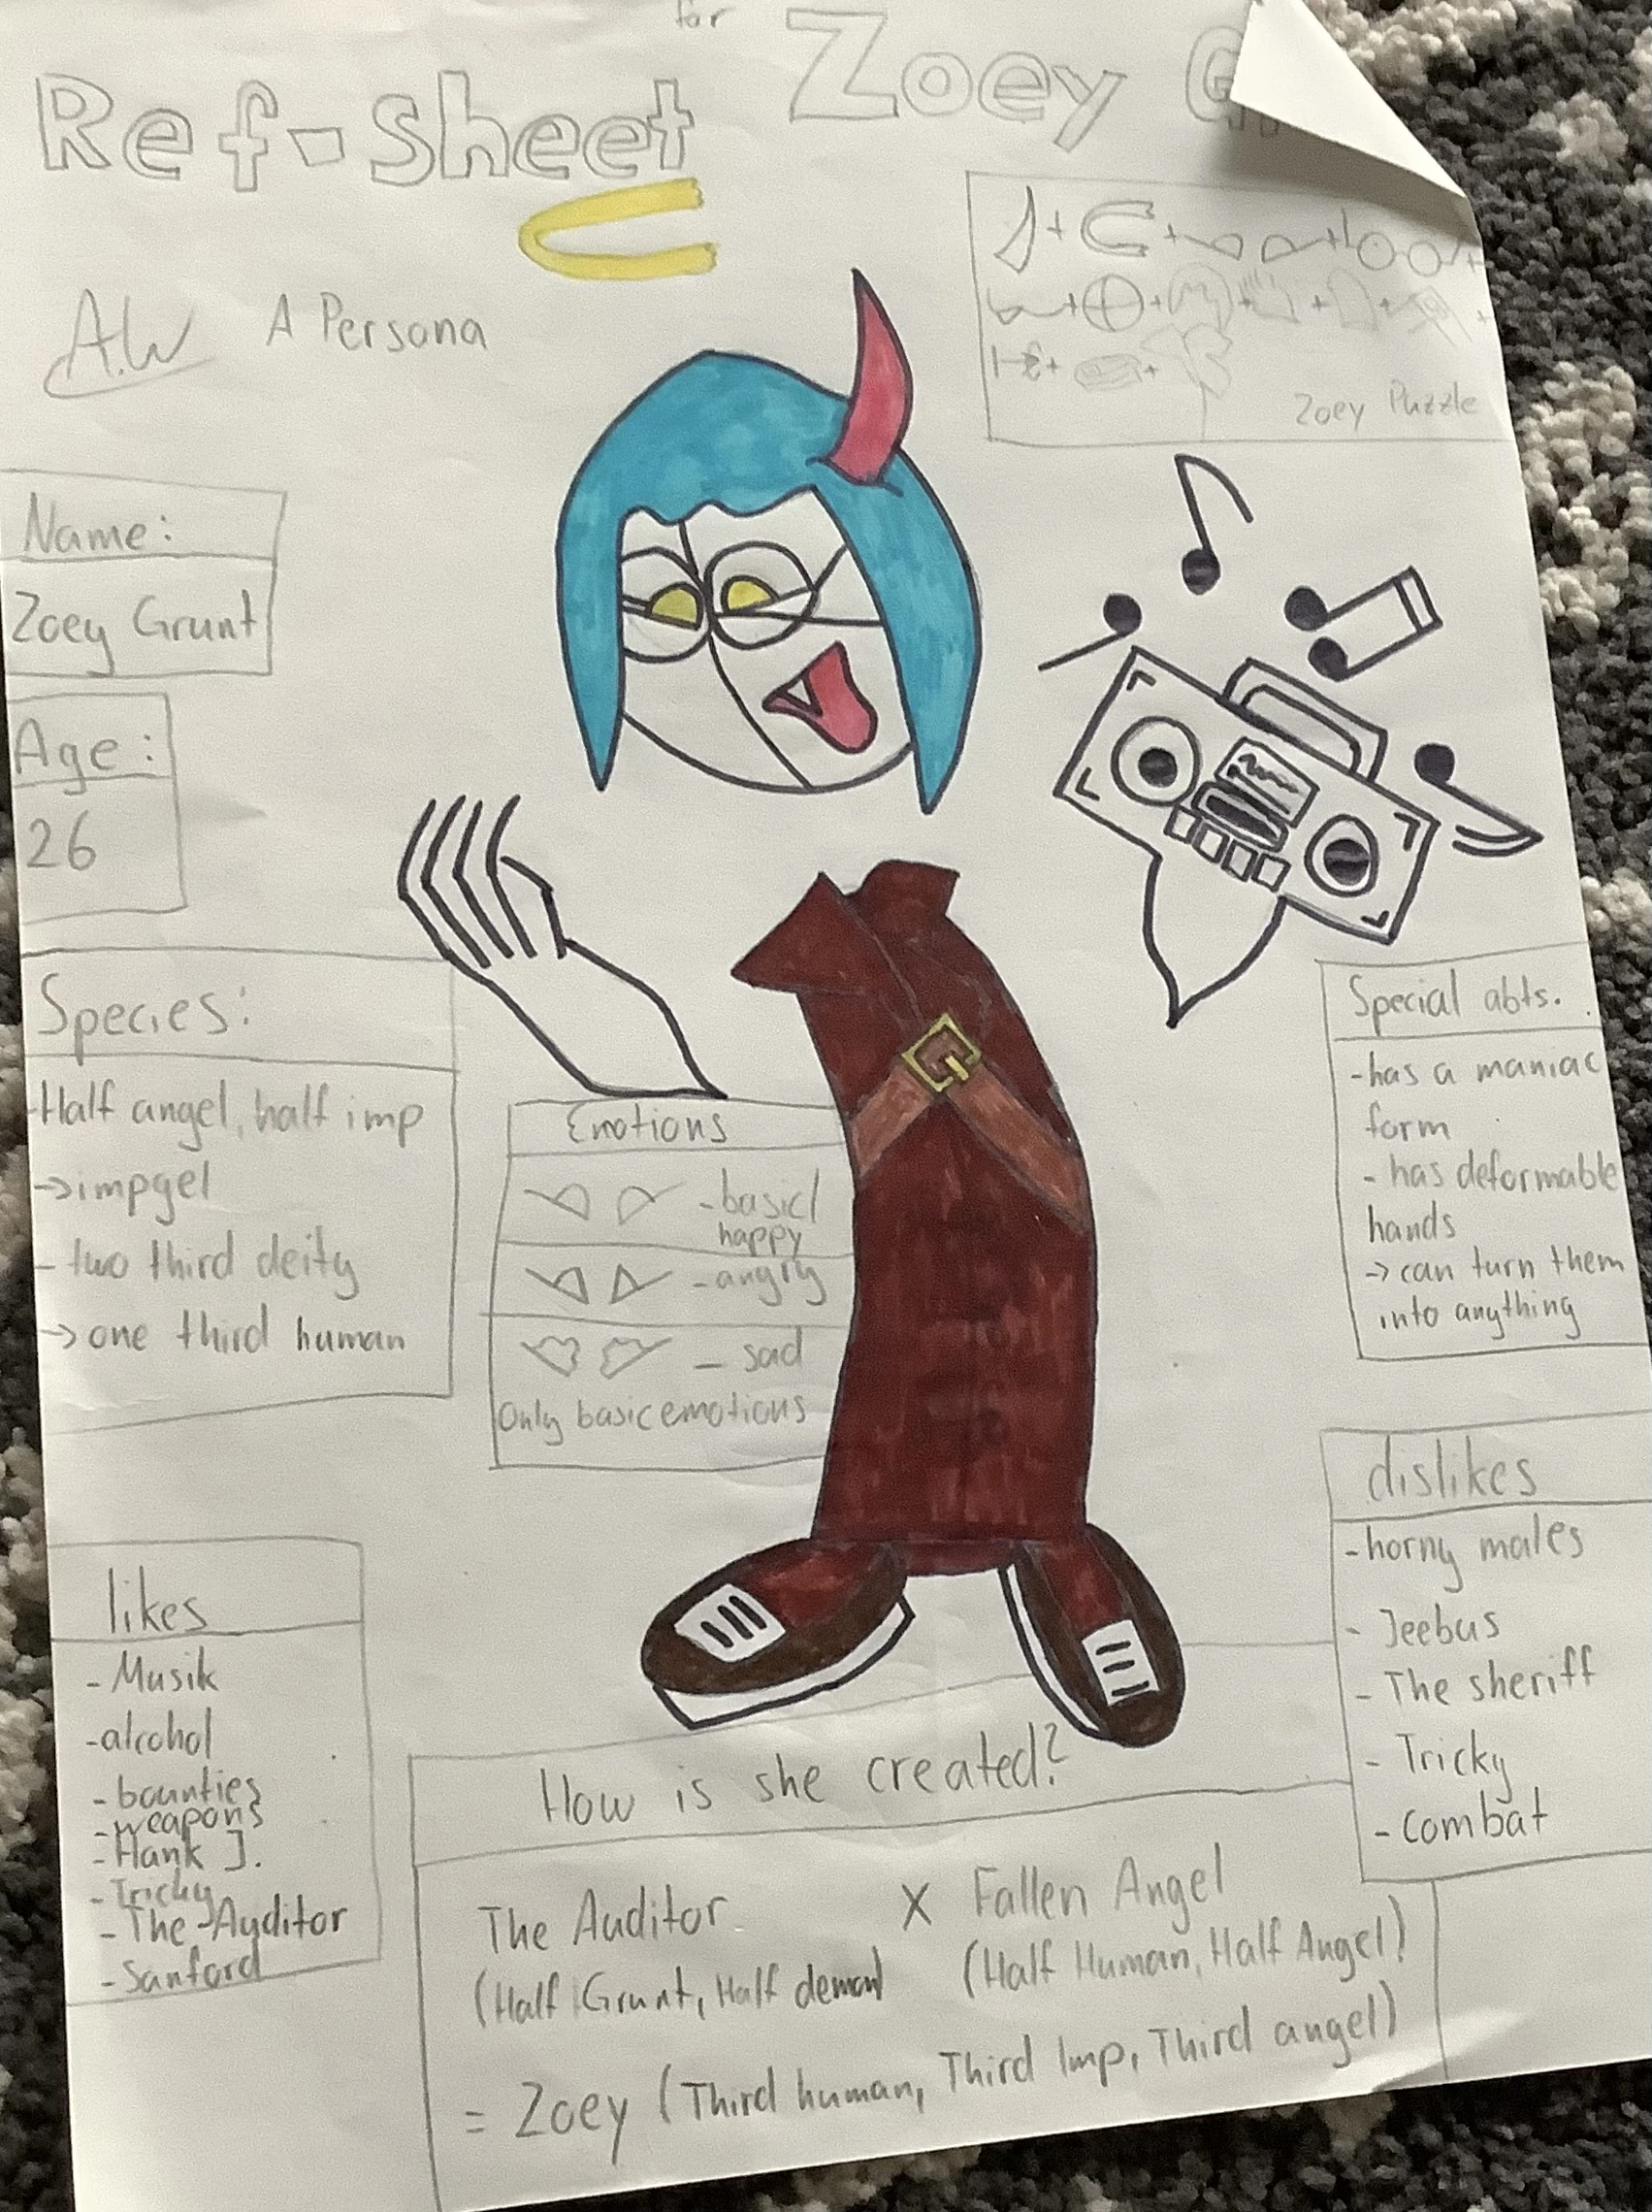 Ref-Sheet for Zoey
A.W
A Persona
Zoey Puzzle
Name:
Zoey Grunt
Age:
26
Species:
-Half angel, half imp
->impgel
-two third deity
->one third human
Emotions
-basic/
happy
-angry
- sad
Only basic emotions
Special abts.
-has a maniac
form
-has deformable
hands
-> can turn them
into anything
likes
-Musik
-alcohol
-bounties
-weapons
-Hank J.
-Tricky
-The Auditor
-Sanford
dislikes
-horny males
- Jeebus
- The sheriff
- Tricky
- combat
How is she created?
The Auditor X Fallen Angel
(Half Grunt, Half demon) (Half Human, Half Angel)
= Zoey (Third human, Third Imp, Third angel)